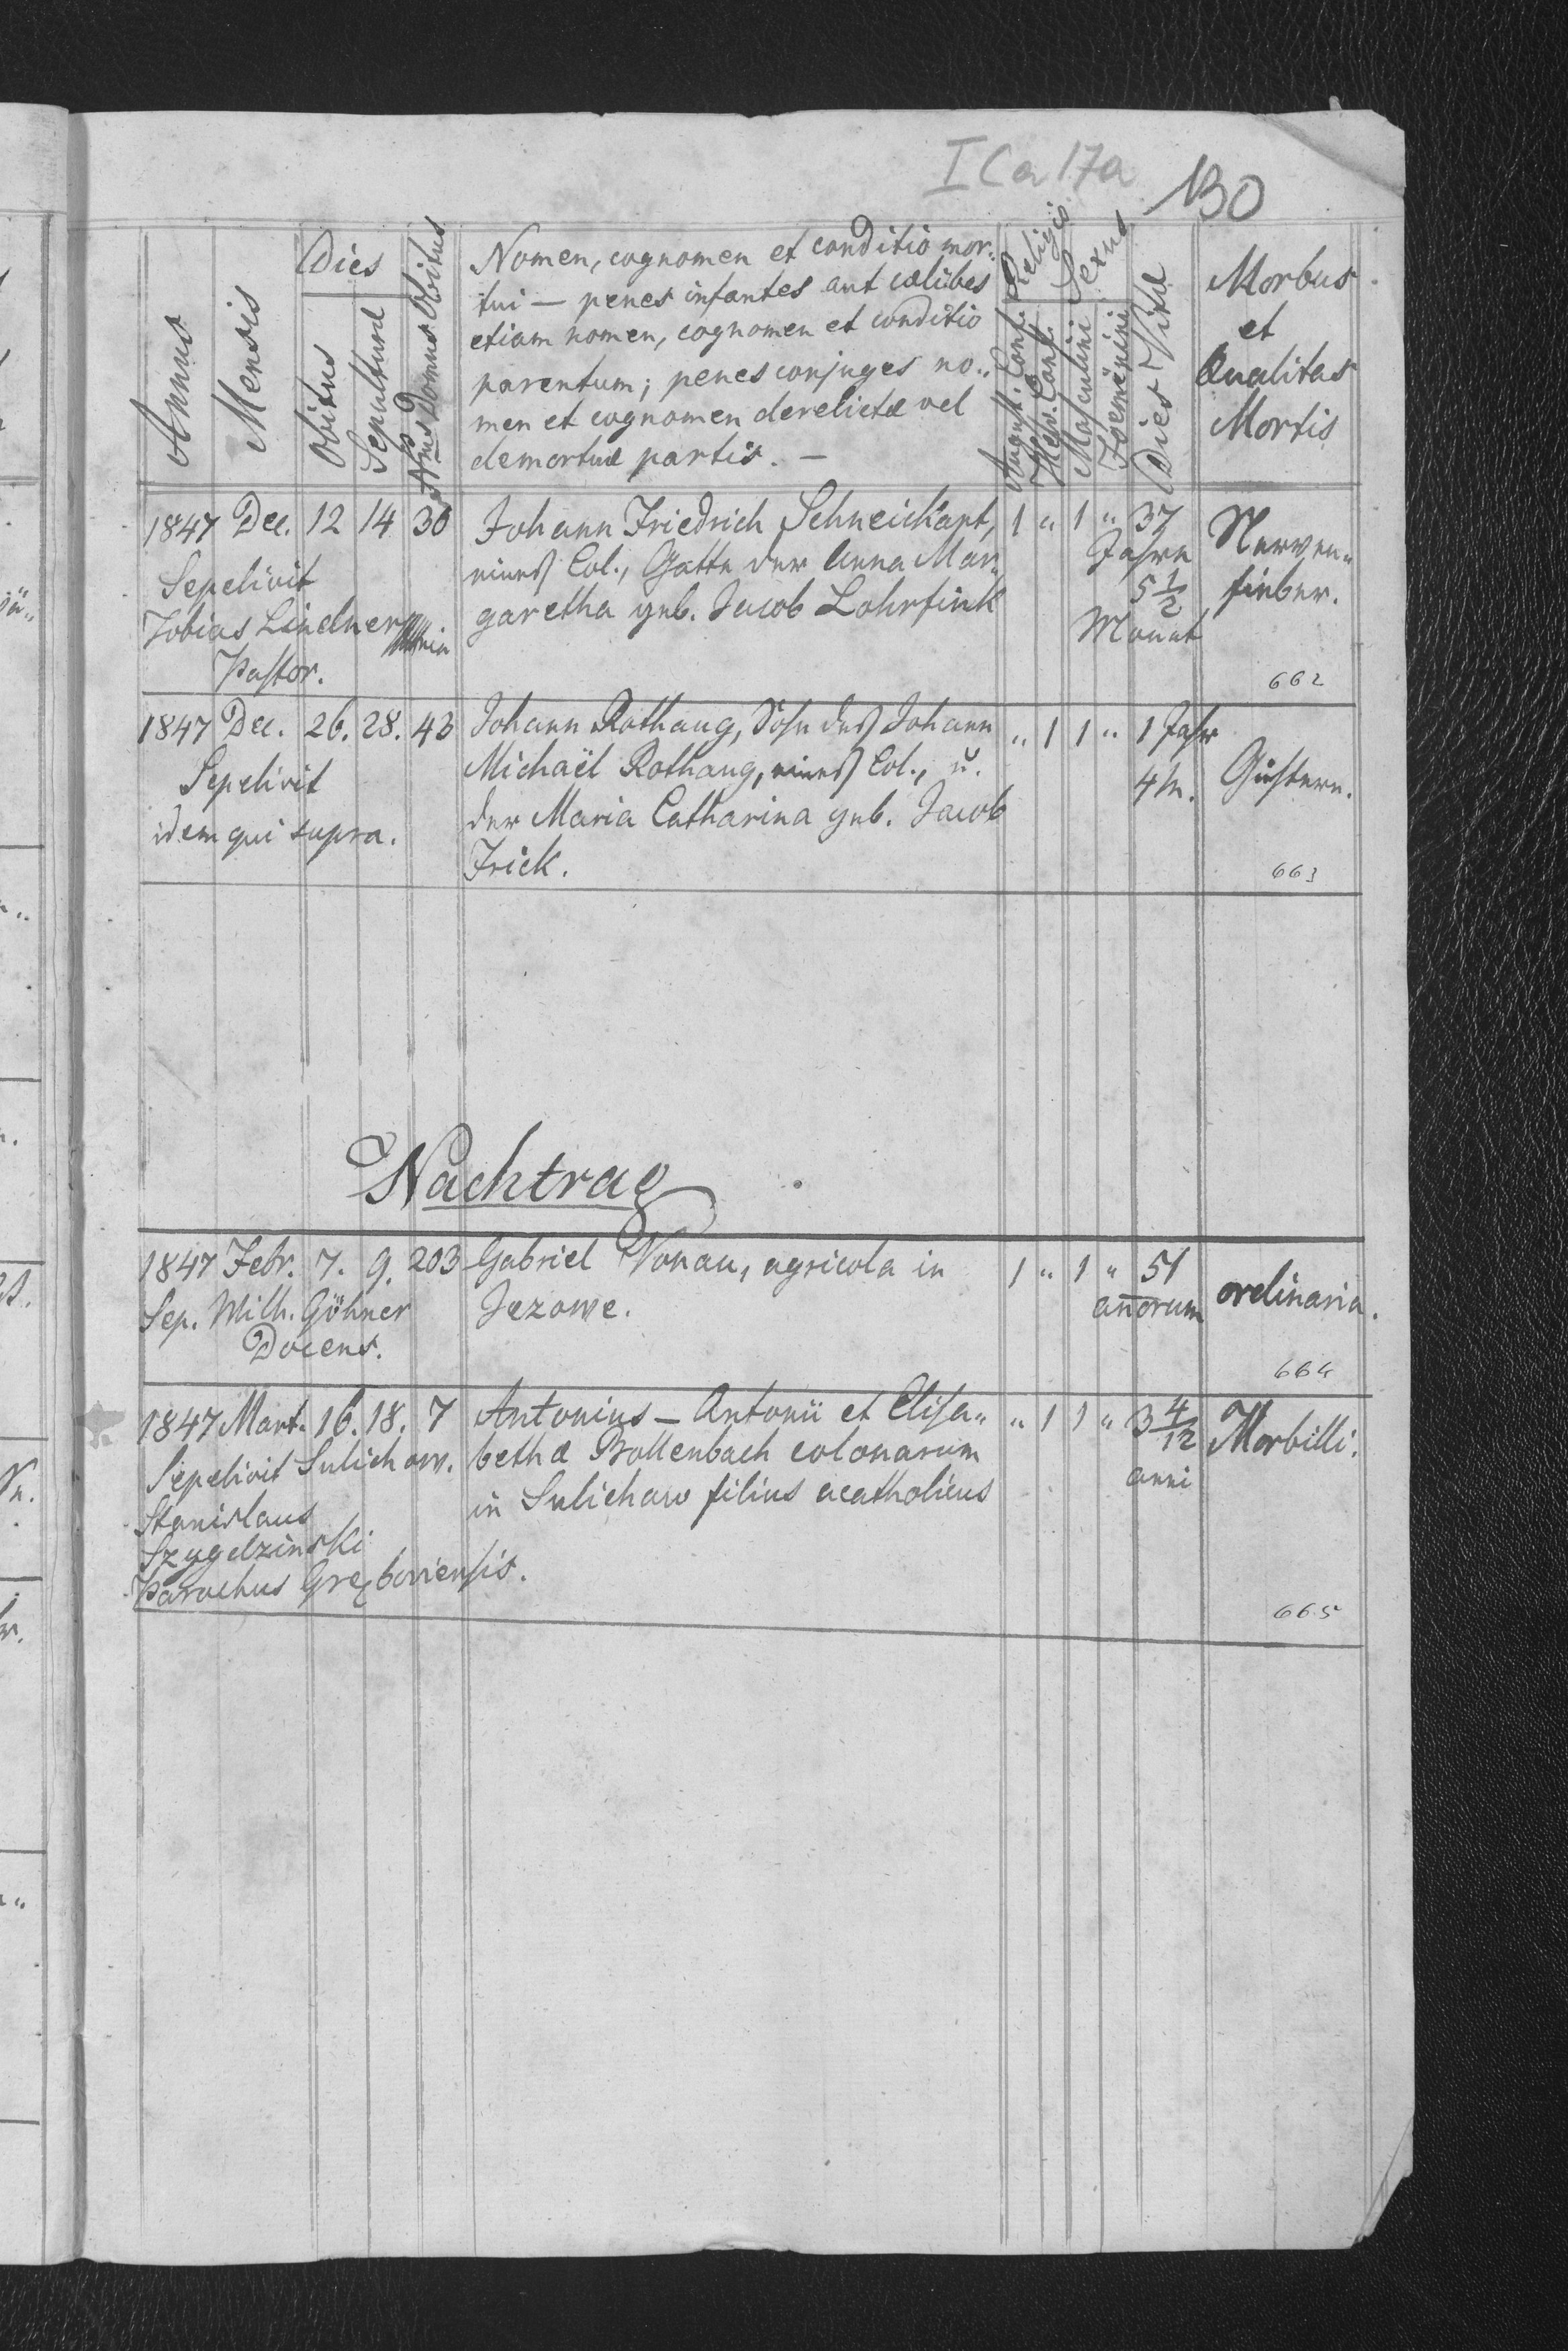 I Ca 17a
130
Annus
Mensis
Dies
Obitus
Sepulturæ
Nrus Domus Obitus
Nomen, cognomen et conditio mor„
tui — penes infantes aut cælibes
etiam nomen, cognomen et conditio
parentum; penes conjuges no„
men et cognomen derelictæ vel
demortuæ partis. —
Religio
August. Conf.
Helv. Conf.
Sexus
Masculini
Foeminini
Dies Vitæ
Morbus
et
Qualitas
Mortis
1847 Dec. 12 14 30 Johann Friedrich Schneickart, 1 „ 1 „ 37
Jahre
5 1/2
Monat
Nerven„
fieber.
eines Col., Gatte der Anna Mar„
garetha geb. Jacob Lohrfink
Sepelivit
Tobias Lindner
Pastor.
662
1847 Dec. 26. 28. 43 Johann Rothaug, Sohn des Johann „ 1 1 „ 1 Jahr
4 M.
Michaël Rothaug, eines Col., u.
der Maria Catharina geb. Jacob
Frick.
Sepelivit
idem qui supra.
663
Nachtrag
1847 Febr. 7. 9. 203 Gabriel Vonau, agricola in 1 „ 1 „ 51
Jezowe.
añorum
ordinaria.
Sep. Wilh. Göhner
Docens.
664
1847 Mart. 16. 18. 7 Antonius — Antonii et Elisa„ „ 1 1 „ 3 4/12
anni
Morbilli.
bethæ Bollenbach colonarum
in Sulichow filius acatholicus
Sepelivit Sulichow.
Stanislaus
Szygelzinski
Parochus Gręboviensis.
665